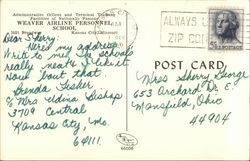 Administrative Offices and Terminal Training
Facilities of Nationally Famous
WEAVER AIRLINE PERSONNEL
SCHOOL
Kansas City, Missouri
ALWAYS
ZIP CO
Dear Sherry:
Here's my address.
Write to me! school's
really neat. I like it.
How 'bout that
Brenda Fisher
% Mrs Edina Bishop
3709 Central
Kansas City, Mo.
64111
POST CARD
Miss Sherry George
653 Orchard Dr.
Mansfield, Ohio
44904